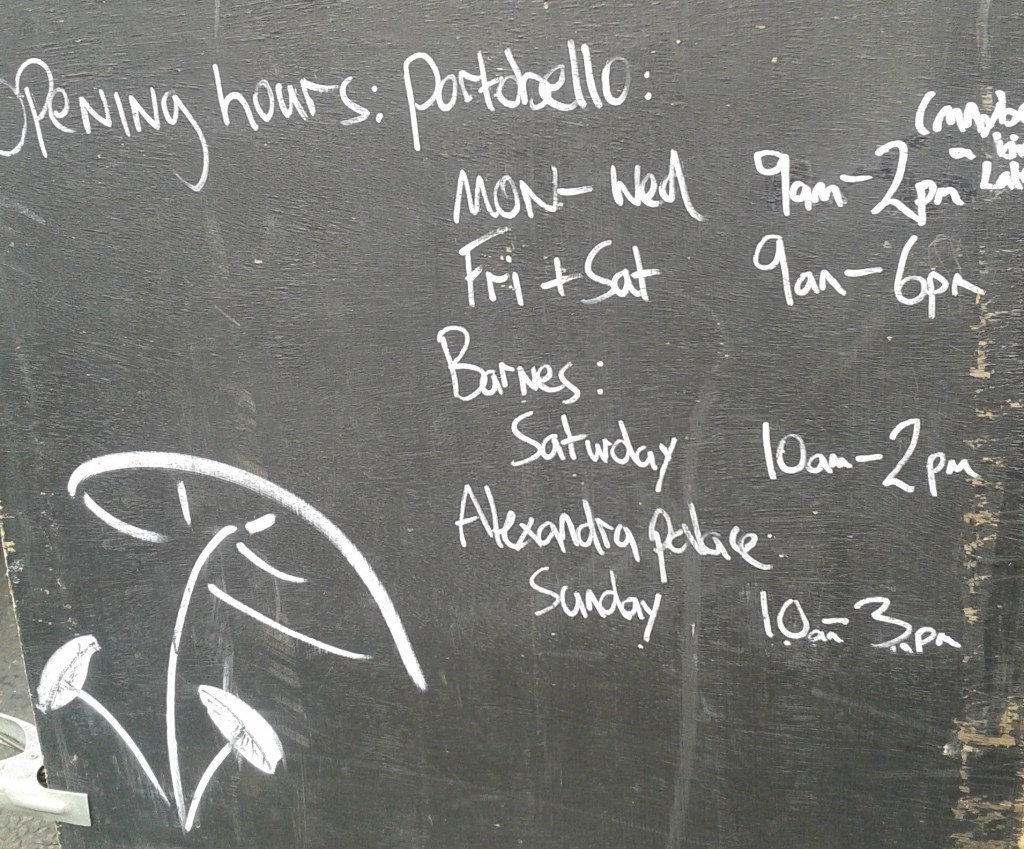 Opening hours: Portobello:
(maybe
a bit
Late
MON - Wed 9am - 2pm
Fri + Sat 9am - 6pm
Barnes:
Saturday 10am - 2pm
Alexandra palace:
Sunday 10am - 3pm